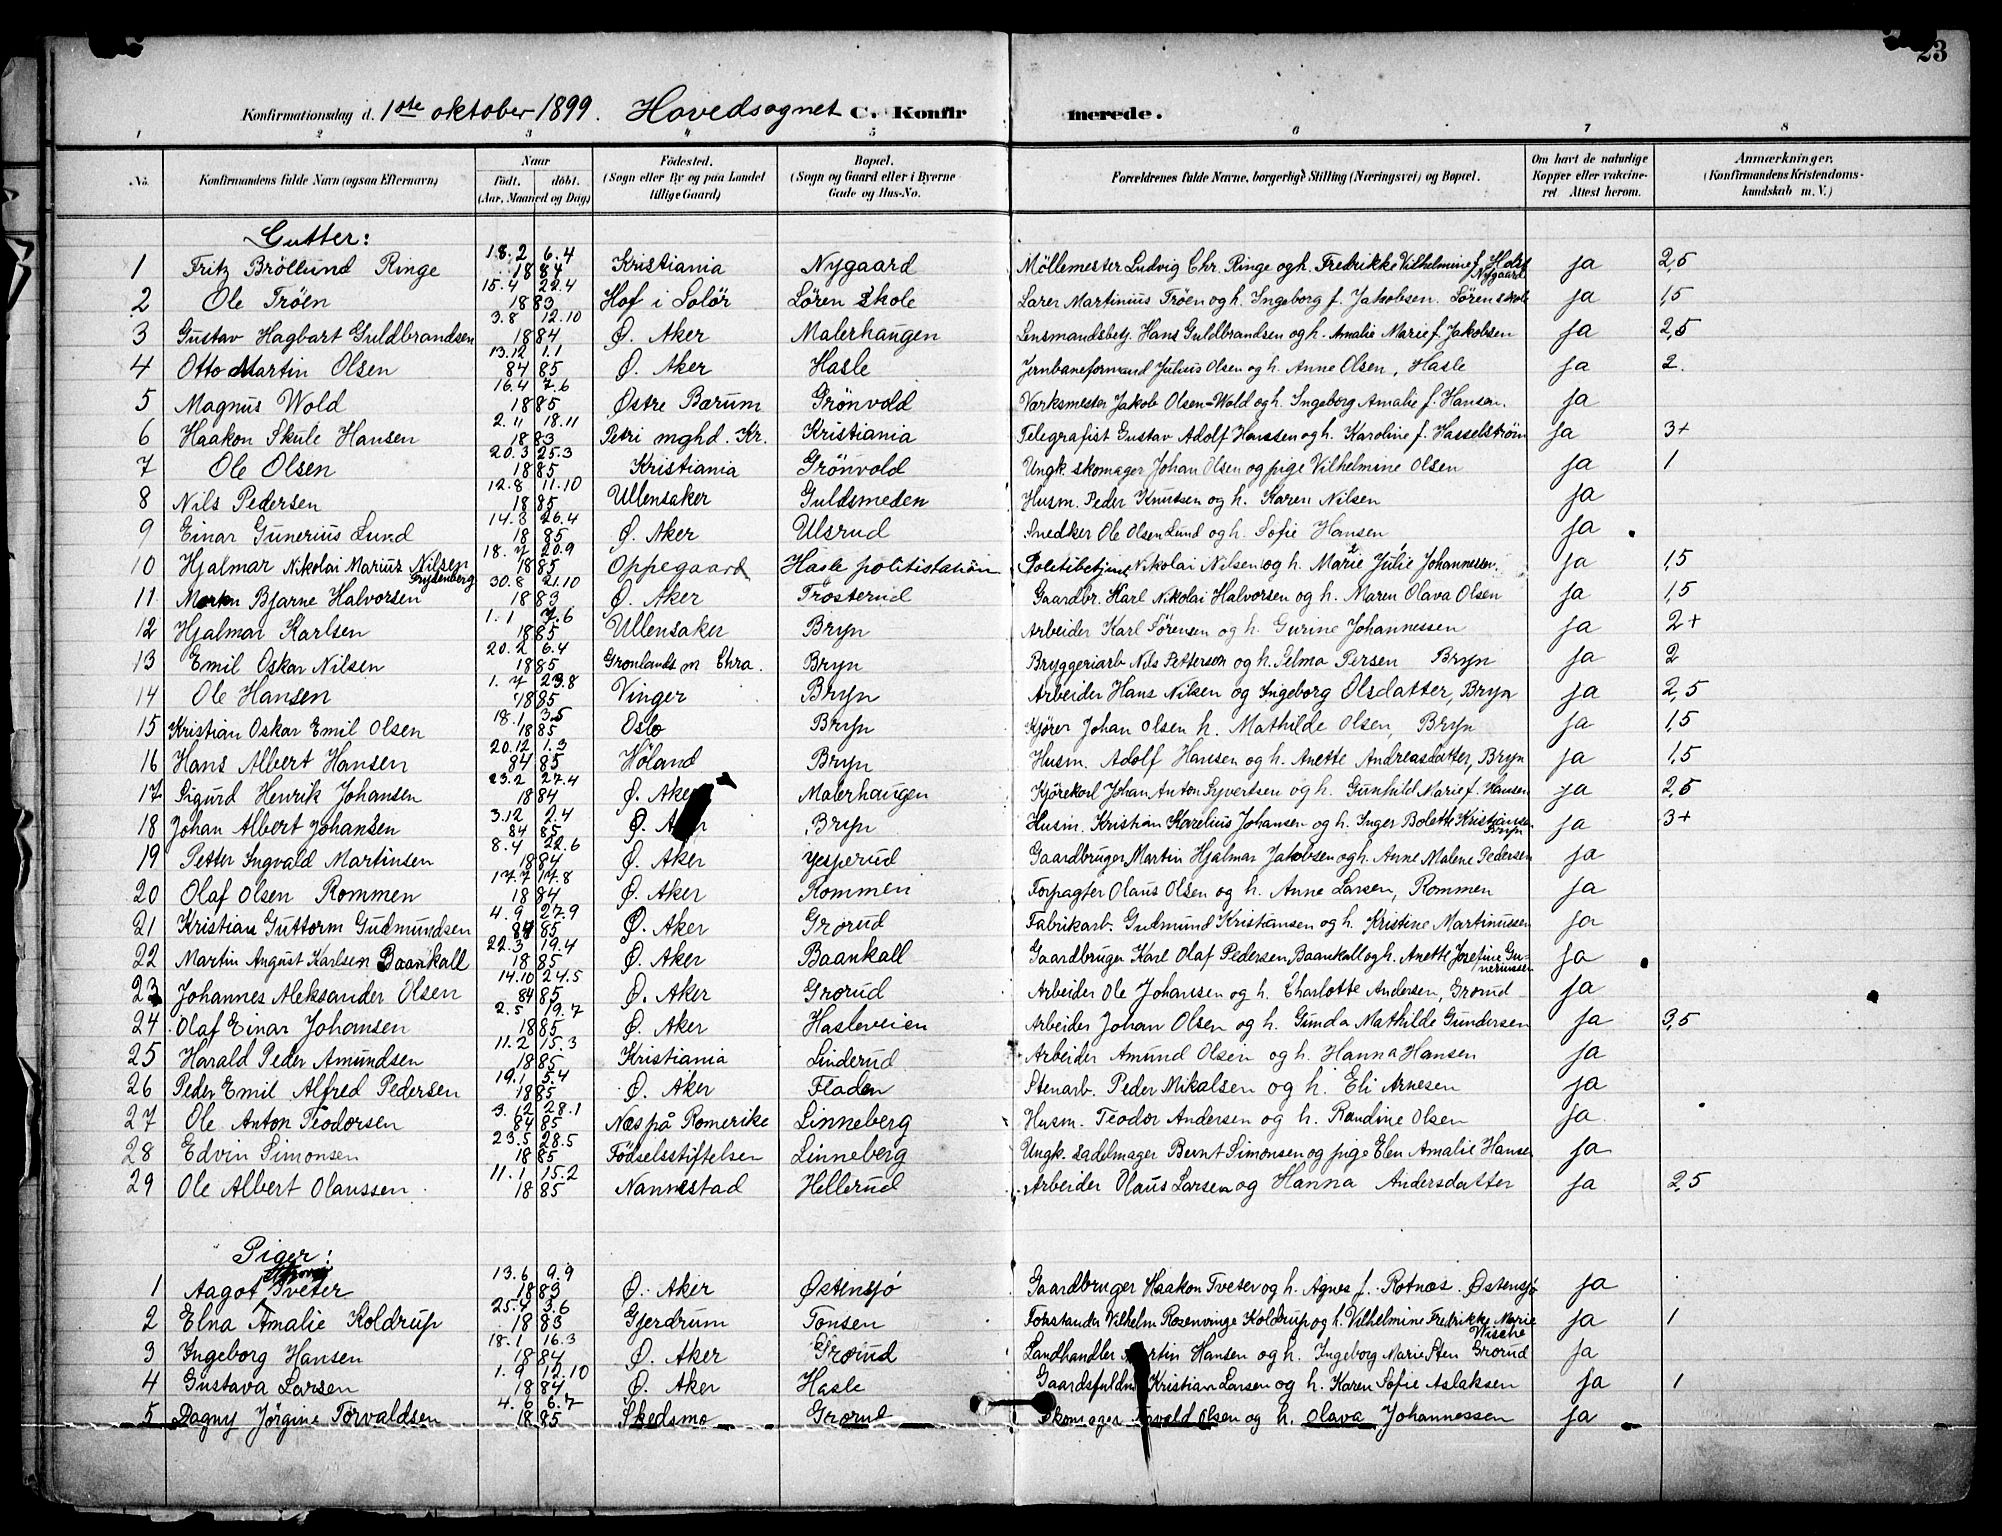 23
Konfirmationsdag d. 1ste oktober 1899. Hovedsognet C. Konfirmerede.
1 2 3 4 5 6 7 8
No. Konfirmandens fulde Navn (ogsaa Efternavn) Naar Født. døbt. (Aar, Maaned og Dag) Fødested. (Sogn eller By og paa Landet tillige Gaard) Bopæl. (Sogn og Gaard eller i Byerne Gade og Hus-No. Forældrenes fulde Navne, borgerlige Stilling (Næringsvei) og Bopæl. Om havt de naturlige Kopper eller vakcineret Attest herom. Anmærkninger, (Konfirmandens Kristendomskundskab m. V.)
Gutter:
1 Fritz Bröllund Ringe 18.2 6.4 1884 Kristiania Nygaard Möllemester Ludvig Chr. Ringe og h. Fredrikke Vilhelmine f. Holst Nygaard ja 2,5
2 Ole Tröen 15.4 22.4 1883 Hof i Solör Lören skole Lærer Martinius Tröen og h. Ingeborg f. Jakobsen. Lörenskole ja 1,5
3 Gustav Hagbart Guldbrandsen 3.8 12.10 1884 Ø. Aker Malerhaugen Lensmandsbetj. Hans Guldbrandsen og h. Amalie Marie f. Jakobsen ja 2,5
4 Otto Martin Olsen 13.12 84 1.1 85 Ø. Aker Hasle Jernbaneformand Julius Olsen og h. Anne Olsen, Hasle ja 2.
5 Magnus Wold 16.4 7.6 1885 Østre Bærum Grönvold Værksmester Jakob Olsen-Wold og h. Ingeborg Amalie f. Hansen. ja
6 Haakon Skule Hansen 2.11 18.11 1883 Petri mghd. Kr. Kristiania Telegrafist Gustav Adolf Hanssen og h. Karoline f. Hasselström ja 3+
7 Ole Olsen 20.3 25.3 1885 Kristiania Grönvold Ungk. skomager Johan Olsen og pige Vilhelmine Olsen ja 1
8 Nils Pedersen 12.8 11.10 1885 Ullensaker Guldsmeden Husm. Peder Knutsen og h. Karen Nilsen ja
9 Einar Gunerius Lund 14.3 26.4 1885 Ø. Aker Ulsrud Snedker Ole Olsen Lund og h. Sofie Hansen ja
10 Hjalmar Nikolai Marius Nilsen Frydenberg 18.7 20.9 1885 Oppegaard Hasle politistation Politibetjent Nikolai Nilsen og h. Marie Julie Johannesen. ja 1,5
11 Bjarne Halvorsen 30.8 21.10 1883 Ø. Aker Trosterud Gaardbr. Karl Nikolai Halvorsen og h. Maren Olava Olsen ja 1,5
12 Hjalmar Karlsen 1.1 7.6 1885 Ullensaker Bryn Arbeider Karl Sörensen og h. Gurine Johannessen ja 2+
13 Emil Oskar Nilsen 20.2 6.4 1885 Grönlands m Chra. Bryn Bryggeriarb Nils Petterson og h. Selma Persen Bryn ja 2
14 Ole Hansen 1.7 23.8 1885 Vinger Bryn Arbeider Hans Nilsen og Ingeborg Olsdatter, Bryn ja 2,5
15 Kristian Oskar Emil Olsen 18.1 3.5 1885 Oslo Bryn Kjörer Johan Olsen h. Mathilde Olsen, Bryn ja 1,5
16 Hans Albert Hansen 20.12 84 1.3 85 Höland Bryn Husm. Adolf Hansen og h. Anette Andreasdatter, Bryn ja 1,5
17 Sigurd Henrik Johansen 23.2 27.4 1884 Ø. Aker Malerhaugen Kjörekarl Johan Anton Syvertsen og h. Gunhild Marie f. Hansen ja 2,5
18 Johan Albert Johansen 3.12 84 2.4 85 Ø. Aker Bryn Husm. Kristian Karelius Johansen og h. Inger Bolette Kristiansen Bryn ja 3+
19 Petter Ingvald Martinsen 8.4 22.6 1884 Ø. Aker Jesperud Gaardbruger Martin Hjalmar Jakobsen og h. Anne Malene Pedersen ja
20 Olaf Olsen Rommen 17.7 17.8 1884 Ø. Aker Rommen Forpagter Olaus Olsen og h. Anne Larsen, Rommen ja
21 Kristian Guttorm Gudmundsen 4.9 84 27.9 85 Ø. Aker Grorud Fabrikarb. Gudmund Kristiansen og h. Kristine Martinussen ja
22 Martin August Karlsen Baankall 22.3 19.4 1885 Ø. Aker Baankall Gaardbruger Karl Olaf Pedersen, Baankall og h. Anette Josefine Gunerussen ja
23 Johannes Aleksander Olsen 14.10 84 24.5 85 Ø. Aker Grorud Arbeider Ole Johansen og h. Charlotte Andersen, Grorud ja
24 Olaf Einar Johansen 2.5 19.7 1885 Ø. Aker Hasleveien Arbeider Johan Olsen og h. Gunda Mathilde Gundersen ja 3,5
25 Harald Peder Amundsen 11.2 15.3 1885 Kristiania Linderud Arbeider Amund Olsen og h. Hanna Hansen ja
26 Peder Emil Alfred Pedersen 19.1 5.4 1885 Ø. Aker Fladen Stenarb. Peder Mikalsen og h. Eli Arnesen ja
27 Ole Anton Teodorsen 3.12 84 28.1 85 Næs på Romerike Linneberg Husm. Teodor Andersen og h. Randine Olsen ja
28 Edvin Simonsen 23.5 28.5 1885 Födselsstiftelsen Linneberg Ungk. sadelmager Bernt Simonsen og pige Elen Amalie Hansen ja
29 Ole Albert Olaussen 11.1 15.2 1885 Nannestad Hellerud Arbeider Olaus Larsen og Hanna Andersdatter ja 2,5
Piger:
1 Aagot Tveter 13.6 9.9 1883 Ø. Aker Østensjø Gaardbruger Haakon Tveter og h. Agnes f. Rotnæs. Østensjø ja
2 Elna Amalie Koldrup 25.4 3.6 1883 Gjerdrum Tonsen Forstander Vilhelm Rozenvinge Koldrup og h. Vilhelmine Fredrikke Marie Wische ja 1
3 Ingeborg Hansen 18.1 16.3 1884 Ø. Aker Grorud Landhandler Martin Hansen og h. Ingeborg Marie Sten Grorud ja
4 Gustava Larsen 1.9 12.10 1884 Ø. Aker Hasle Gaardsfuldm. Kristian Larsen og h. Karen Sofie Aslaksen ja 1
5 Dagny Jörgine Torvaldsen 4.6 6.7 1885 Skedsmo Grorud Skomager Torvald Olsen og h. Olava Johannessen ja